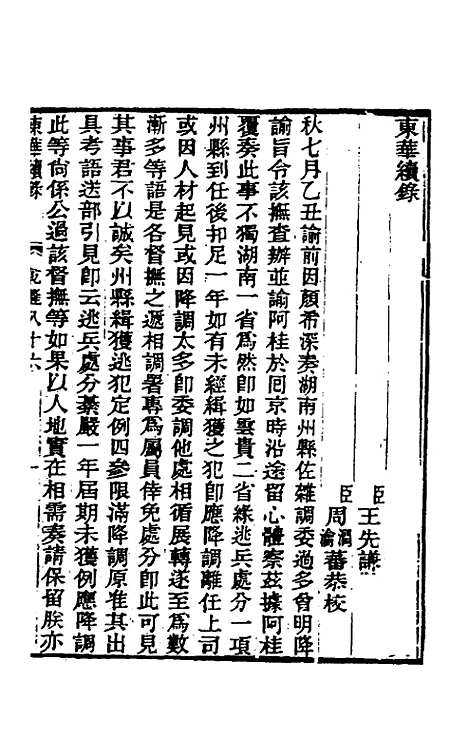 東華續錄
臣王先謙
臣周潤蕃瀹蕃恭校
秋七月乙丑諭前因顏希深奏湖南州縣佐雜調委過多曾明降
諭旨令該撫查辦並諭阿桂於囘京時沿途留心體察茲據阿桂
覆奏此事不獨湖南一省爲然卽如雲貴二省緣逃兵處分一項
州縣到任後扣足一年如有未經緝獲之犯卽應降調離任上司
或因人材起見或因降調太多卽委調他處相循展轉遂至爲數
漸多等語是各督撫之遞相調署專爲屬員倖免處分卽此可見
其事君不以誠矣州縣緝獲逃犯定例四參限滿降調原准其出
具考語送部引見卽云逃兵處分綦嚴一年屆期未獲例應降調
此等尙係公過該督撫等如果以人地實在相需奏請保留朕亦
東華續錄 乾隆八十六 一